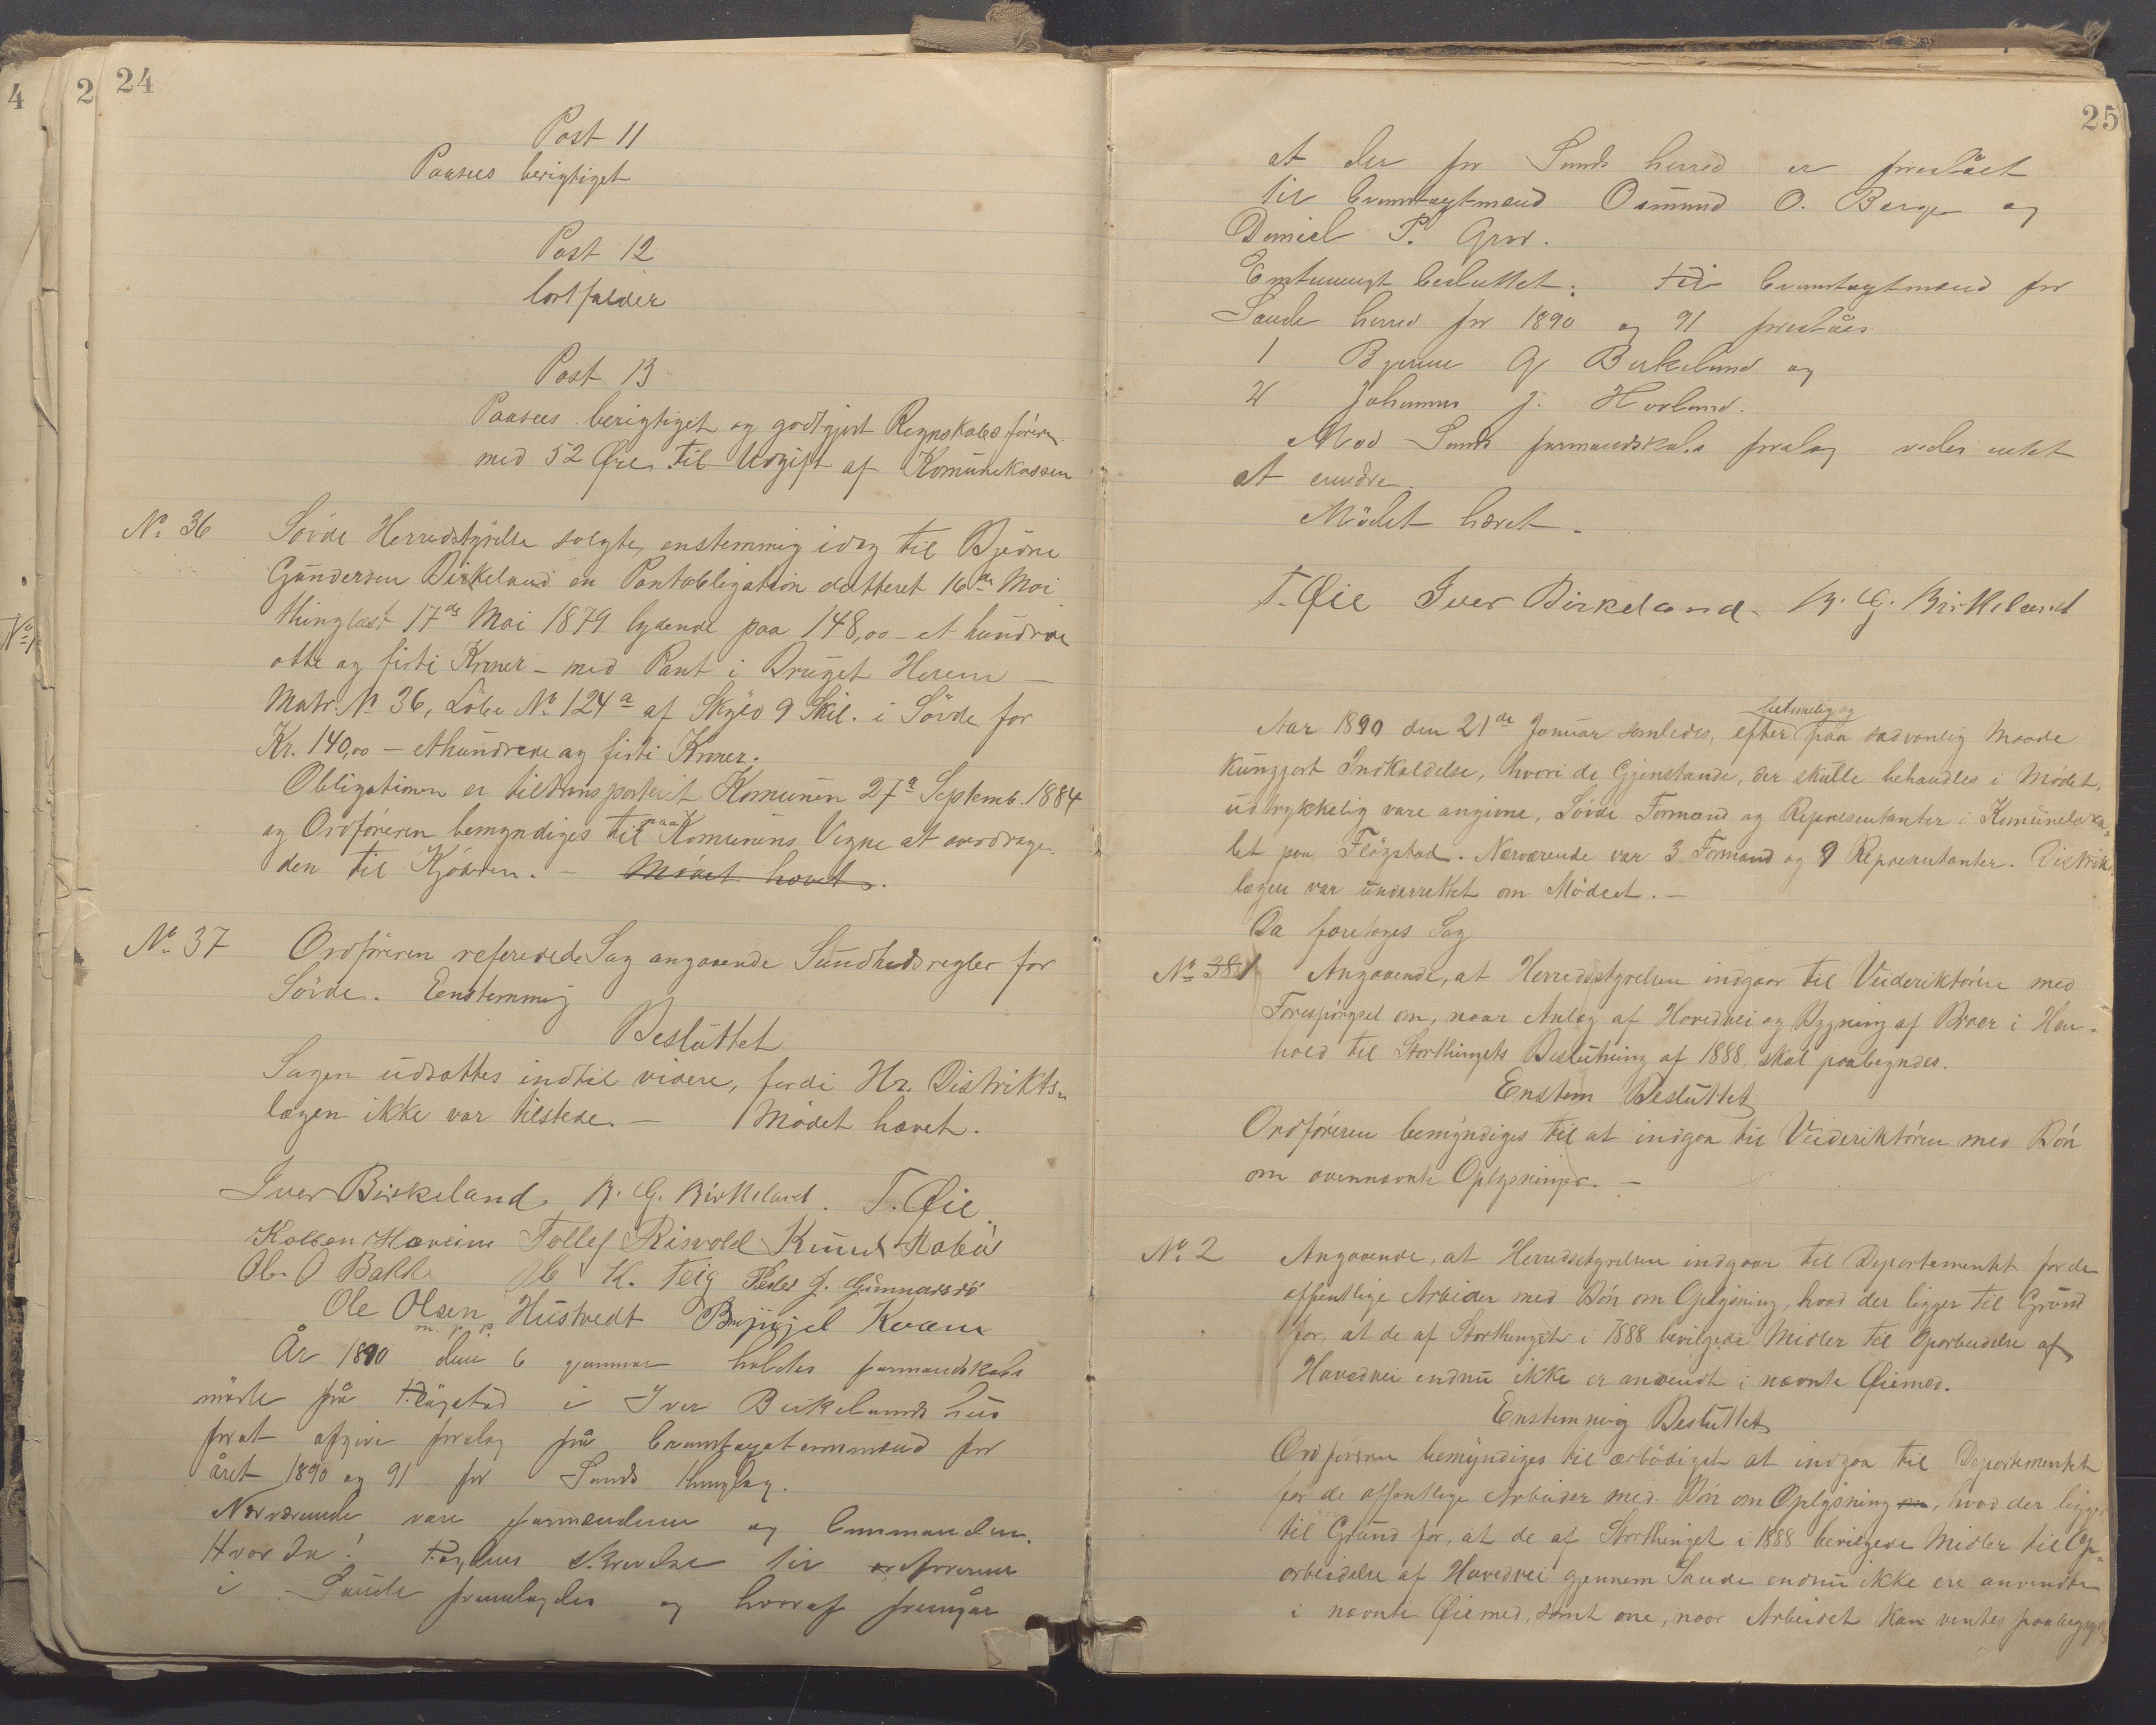 24
Post 11
Paasees berigtiget
Post 12
bortfalder
Post 13
Paasees berigtiget og godtgjort Regnskabsføreren
med 52 Øre til Udgift af Komunekassen
No. 36 Søvde Herredstyrelse solgte, enstemmig idag til Bjerne
Gundersen Birkeland en Pantobligation datteret 16de Mai
thinglæst 17de Mai 1879 lydende paa 148,00 - et hundrede
otte og firti Kroner - med Pant i Bruget
Matr. No 36, Løbe No 124a af Skyld 9 Skil. i Søvde for
Kr. 140,00 - ethundrede og firti Kroner.
Obligationen er tiltransporteret Komunen 27de Septemb. 1884
og Ordføreren bemyndiges til paa Komunens Vegne at overdrage
den til Kjøberen. - Mødet hævet.
No. 37 Ordføreren refererede Sag angaaende Sundhedsregler for
Søvde. Eenstemmig
Besluttet
Sagen udsættes indtil videre, fordi Hr. Distrikts-
lægen ikke var tilstede. - Mødet hævet.
Iver Birkeland B. G. Birkeland. T. Øie
Kolben Tollef Risvold Knud
Ole O Bakke Ole K. Teig Peder J.
Ole Olsen Hustvedt Kvam
m. p. p.
År 1890 den 6 januar holdtes formandskabs
møde på Fløgstad i Iver Birkelands hus
for at afgive forslag på for
året 1890 og 91 for Sands thinglag.
Nærværende vare formændene og
Hvor da! Fogdens Skrivelse til ordføreren
i Saude fremlagdes og hvoraf fremgår
25
at der for Sands herred er foreslået
til Osmund O. Berge og
Daniel P.
Enstemmigt besluttet: til for
Saude herred for 1890 og 91 foreslåes
1 Bjerne G Birkeland og
2 Johannes J.
Mod Sands formandskabs forslag vides intet
at erindre.
Mødet hævet.
T. Øie Iver Birkeland B. G. Birkeland
betimelig og
Aar 1890 den 21de Januar samledes, efter paa sædvanlig Maade
kungjort Indkaldelse, hvori de Gjenstande, der skulle behandles i Mødet,
udtrykkelig vare angivne, Søvde Formænd og Repræsentanter i Komuneloka-
let paa Fløgstad. Nærværende var 3 Formænd og 9 Repræsentanter. Distrik
lægen var underrettet om Mødeet. -
Da foretoges Sag
No 381 Angaaende, at Herredsstyrelsen indgaar til Veideriktøren med
Forespørgsel om, naar Anlæg af Hovedvei og Bygning af Broer i Hen-
hold til Storthingets Beslutning af 1888, skal paabegyndes.
Enstem Besluttet
Ordføreren bemyndiges til at indgaa til Veideriktøren med Bøn
om ovennævnte Oplysninger. -
No 2 Angaaende, at Herredsstyrelsen indgaar til Departementet for de
offentlige Arbeider med Bøn om Oplysning, hvad der ligger til Grund
for, at de af Storthinget i 1888 bevilgede Midler til Oparbeidelse af
Hovedvei endnu ikke er anvendt i nævnte Øiemed.
Enstemmig Besluttet
Ordføreren bemyndiges til ærbødigst at indgaa til Departementet
for de offentlige Arbeider med Bøn om Oplysning om, hvad der ligger
til Grund for, at de af Storthinget i 1888 bevilgede Midler til Op-
arbeidelse af Hovedvei gjennem Saude endnu ikke ere anvendte
i nævnte Øiemed, samt om, naar Arbeidet kan ventes paabegyndt